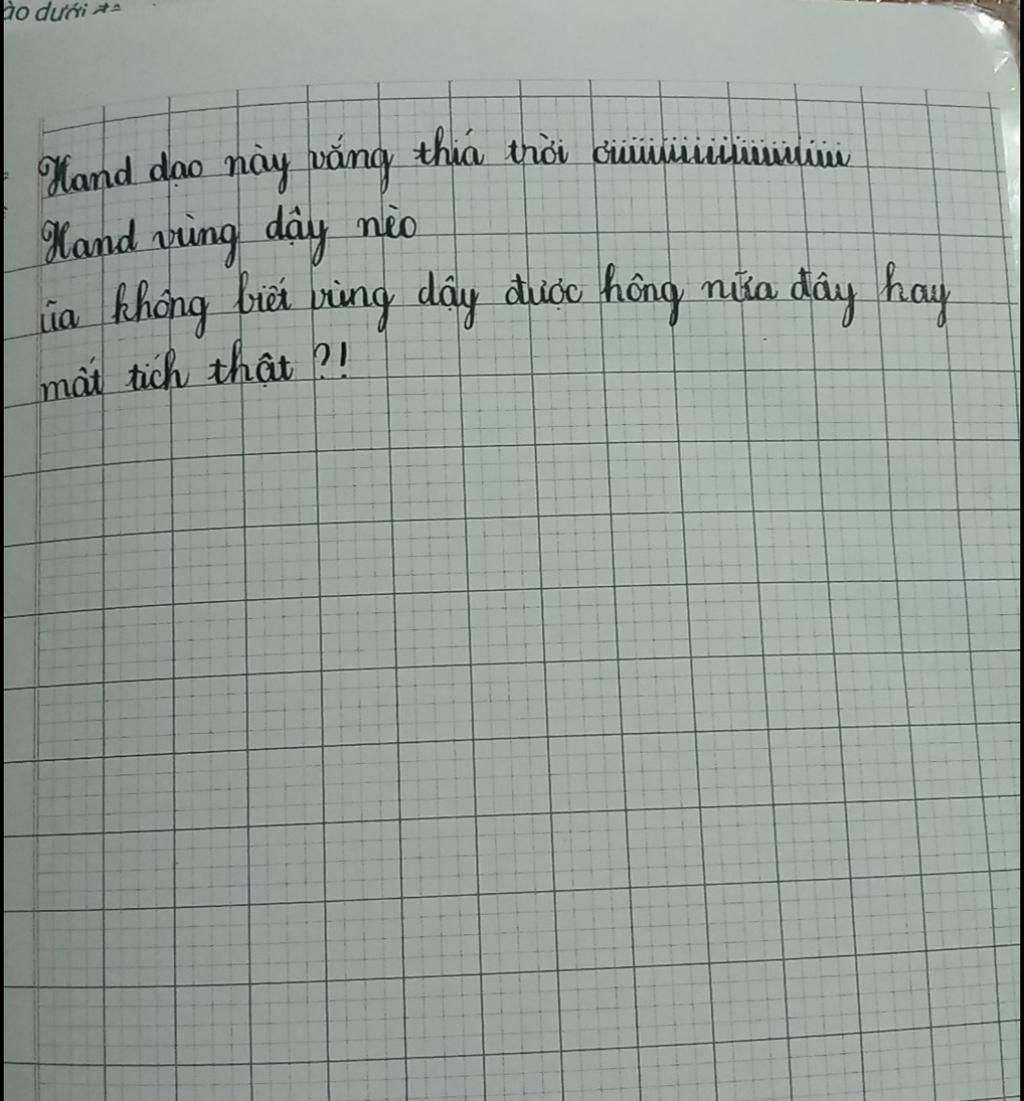 ào dưới
Hand dạo này vắng thiá trời ơiiiiiiiiiiiiiiiiiiiiii
Hand vùng dậy nèo
ũa không biết vùng dậy được hông nữa đây hay
mất tích thật ?!